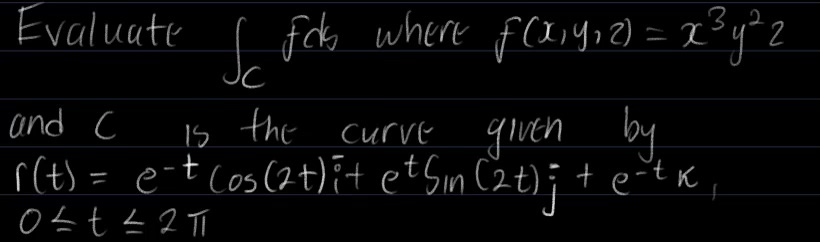 Evaluate ∫_C f ds where f(x,y,z) = x³y²z
and C is the curve given by
r(t) = e^{-t} Cos(2t) i + e^t Sin(2t) j + e^{-t} K,
0 ≤ t ≤ 2π